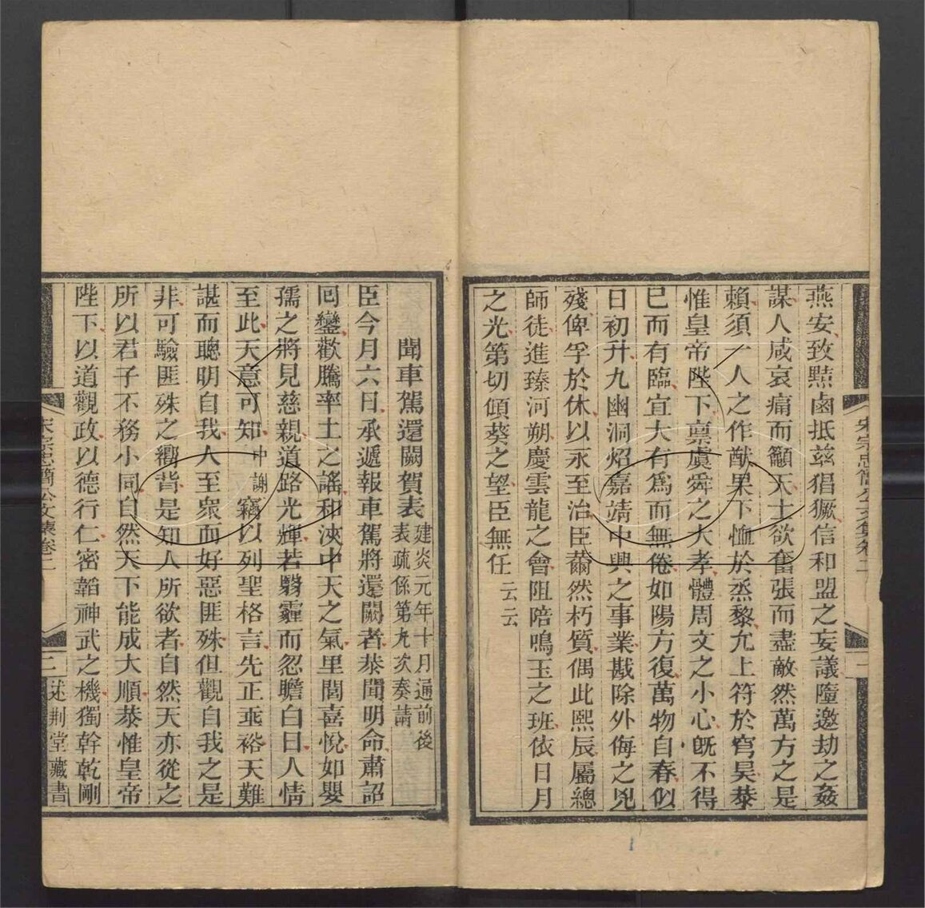 燕安致黠鹵抵茲猖獗信和盟之妄議墮邀劫之姦
謀人咸哀痛而籲天士欲奮張而盡敵然萬方之是
賴須一人之作猷果下恤於烝黎允上符於穹昊恭
惟皇帝陛下稟虞舜之大孝體周文之小心旣不得
巳而有臨宜大有爲而無倦如陽方復萬物自春似
日初升九幽洞炤嘉靖中興之事業戡除外侮之兇
殘俾孚於休以永至治臣薾然朽質偶此熙辰屬總
師徒進臻河朔慶雲龍之會阻陪鳴玉之班依日月
之光第切傾葵之望臣無任云云
宋宗忠簡公文集卷二
一
聞車駕還闕賀表建炎元年十月遍前後
表疏係第九次奏請
臣今月六日承遞報車駕將還闕者恭聞明命肅詔
囘鑾歡騰率土之謠和浹中天之氣里閭喜悅如嬰
孺之將見慈親道路光輝若翳霾而忽瞻白日人情
至此天意可知中謝竊以列聖格言先正垂裕天難
諶而聰明自我人至衆而好惡匪殊但觀自我之是
非可驗匪殊之嚮背是知人所欲者自然天亦從之
所以君子不務小同自然天下能成大順恭惟皇帝
陛下以道觀政以德行仁密韜神武之機獨幹乾剛
宋宗忠簡公文集卷二
二
述荆堂藏書